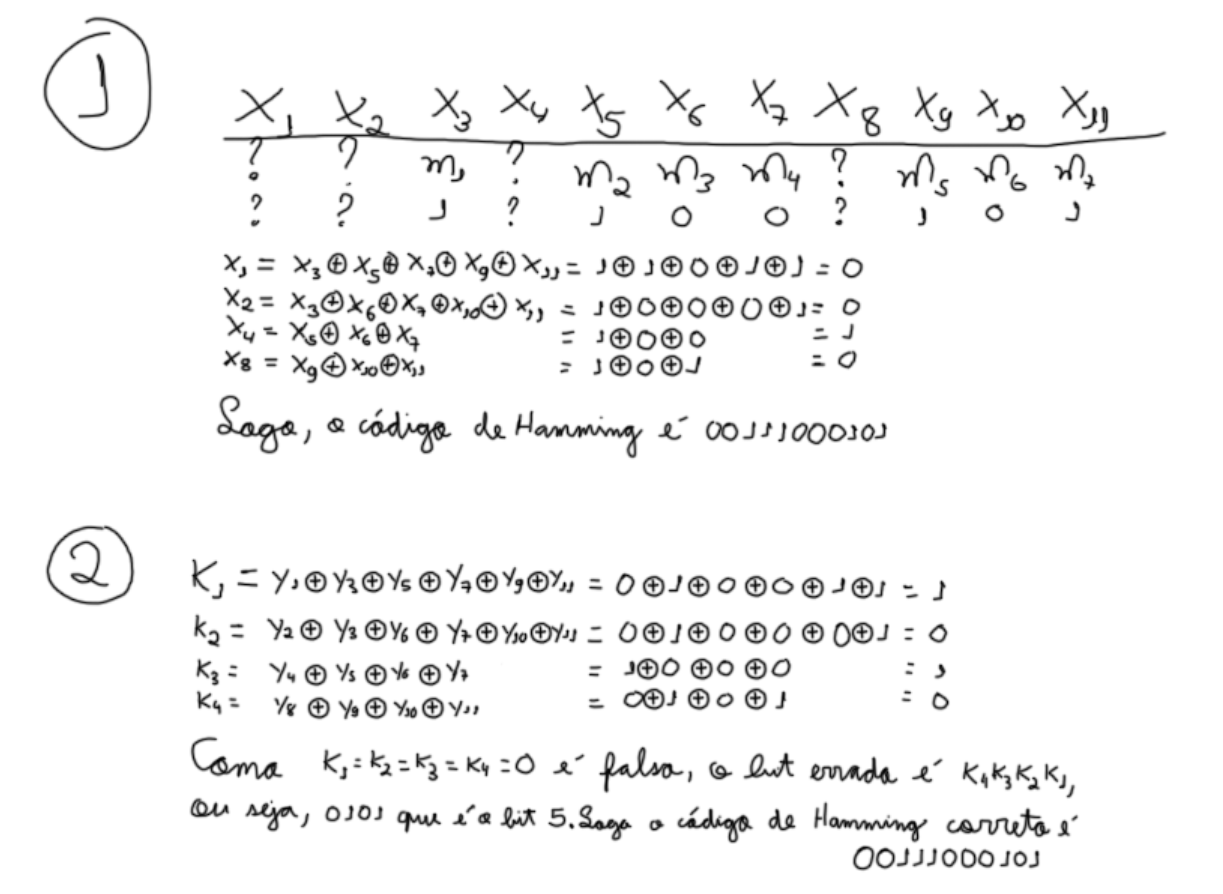 1
X₁ X₂ X₃ X₄ X₅ X₆ X₇ X₈ X₉ X₁₀ X₁₁
? ? m₁ ? m₂ m₃ m₄ ? m₅ m₆ m₇
? ? 1 ? 1 0 0 ? 1 0 1
X₁ = X₃ ⊕ X₅ ⊕ X₇ ⊕ X₉ ⊕ X₁₁ = 1 ⊕ 1 ⊕ 0 ⊕ 1 ⊕ 1 = 0
X₂ = X₃ ⊕ X₆ ⊕ X₇ ⊕ X₁₀ ⊕ X₁₁ = 1 ⊕ 0 ⊕ 0 ⊕ 0 ⊕ 1 = 0
X₄ = X₅ ⊕ X₆ ⊕ X₇ = 1 ⊕ 0 ⊕ 0 = 1
X₈ = X₉ ⊕ X₁₀ ⊕ X₁₁ = 1 ⊕ 0 ⊕ 1 = 0
Logo, o código de Hamming é 00111000101
2
K₁ = Y₁ ⊕ Y₃ ⊕ Y₅ ⊕ Y₇ ⊕ Y₉ ⊕ Y₁₁ = 0 ⊕ 1 ⊕ 0 ⊕ 0 ⊕ 1 ⊕ 1 = 1
K₂ = Y₂ ⊕ Y₃ ⊕ Y₆ ⊕ Y₇ ⊕ Y₁₀ ⊕ Y₁₁ = 0 ⊕ 1 ⊕ 0 ⊕ 0 ⊕ 0 ⊕ 1 = 0
K₃ = Y₄ ⊕ Y₅ ⊕ Y₆ ⊕ Y₇ = 1 ⊕ 0 ⊕ 0 ⊕ 0 = 1
K₄ = Y₈ ⊕ Y₉ ⊕ Y₁₀ ⊕ Y₁₁ = 0 ⊕ 1 ⊕ 0 ⊕ 1 = 0
Como K₁ = K₂ = K₃ = K₄ = 0 é falsa, o bit errado é K₄K₃K₂K₁,
ou seja, 0101 que é o bit 5. Logo o código de Hamming correto é
00111000101